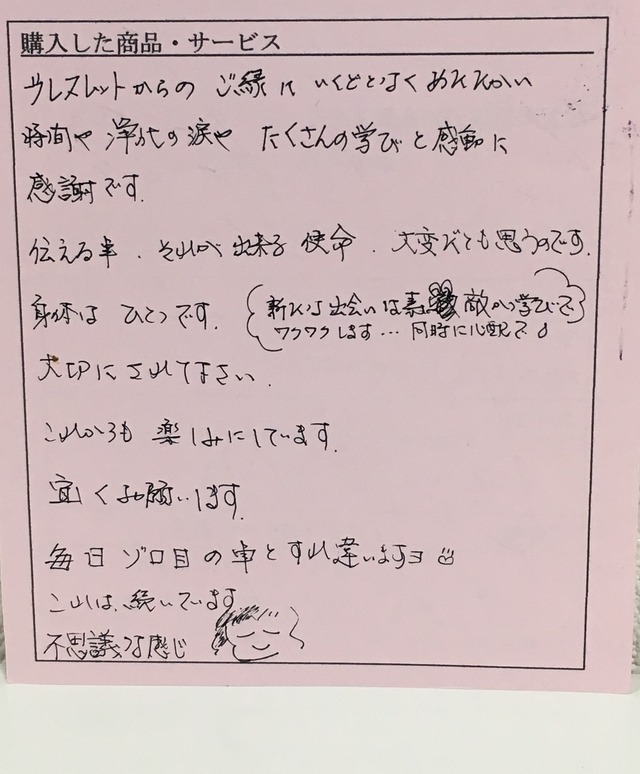 購入した商品・サービス
ブレスレットからの ご縁に いくどとなく あたたかい
時間や 浄化の涙や たくさんの学びと感動に
感謝です.
伝える事、それが 出来る 使命、大変だとも思うのです.
身体は ひとつです.
新たな出会いは素敵かつ学びで
ワクワクします… 同時に心配で
大切にされて下さい.
これからも 楽しみにしています.
宜しくお願いします.
毎日 ゾロ目の車とすれ違いますヨ
これは、続いています
不思議な感じ